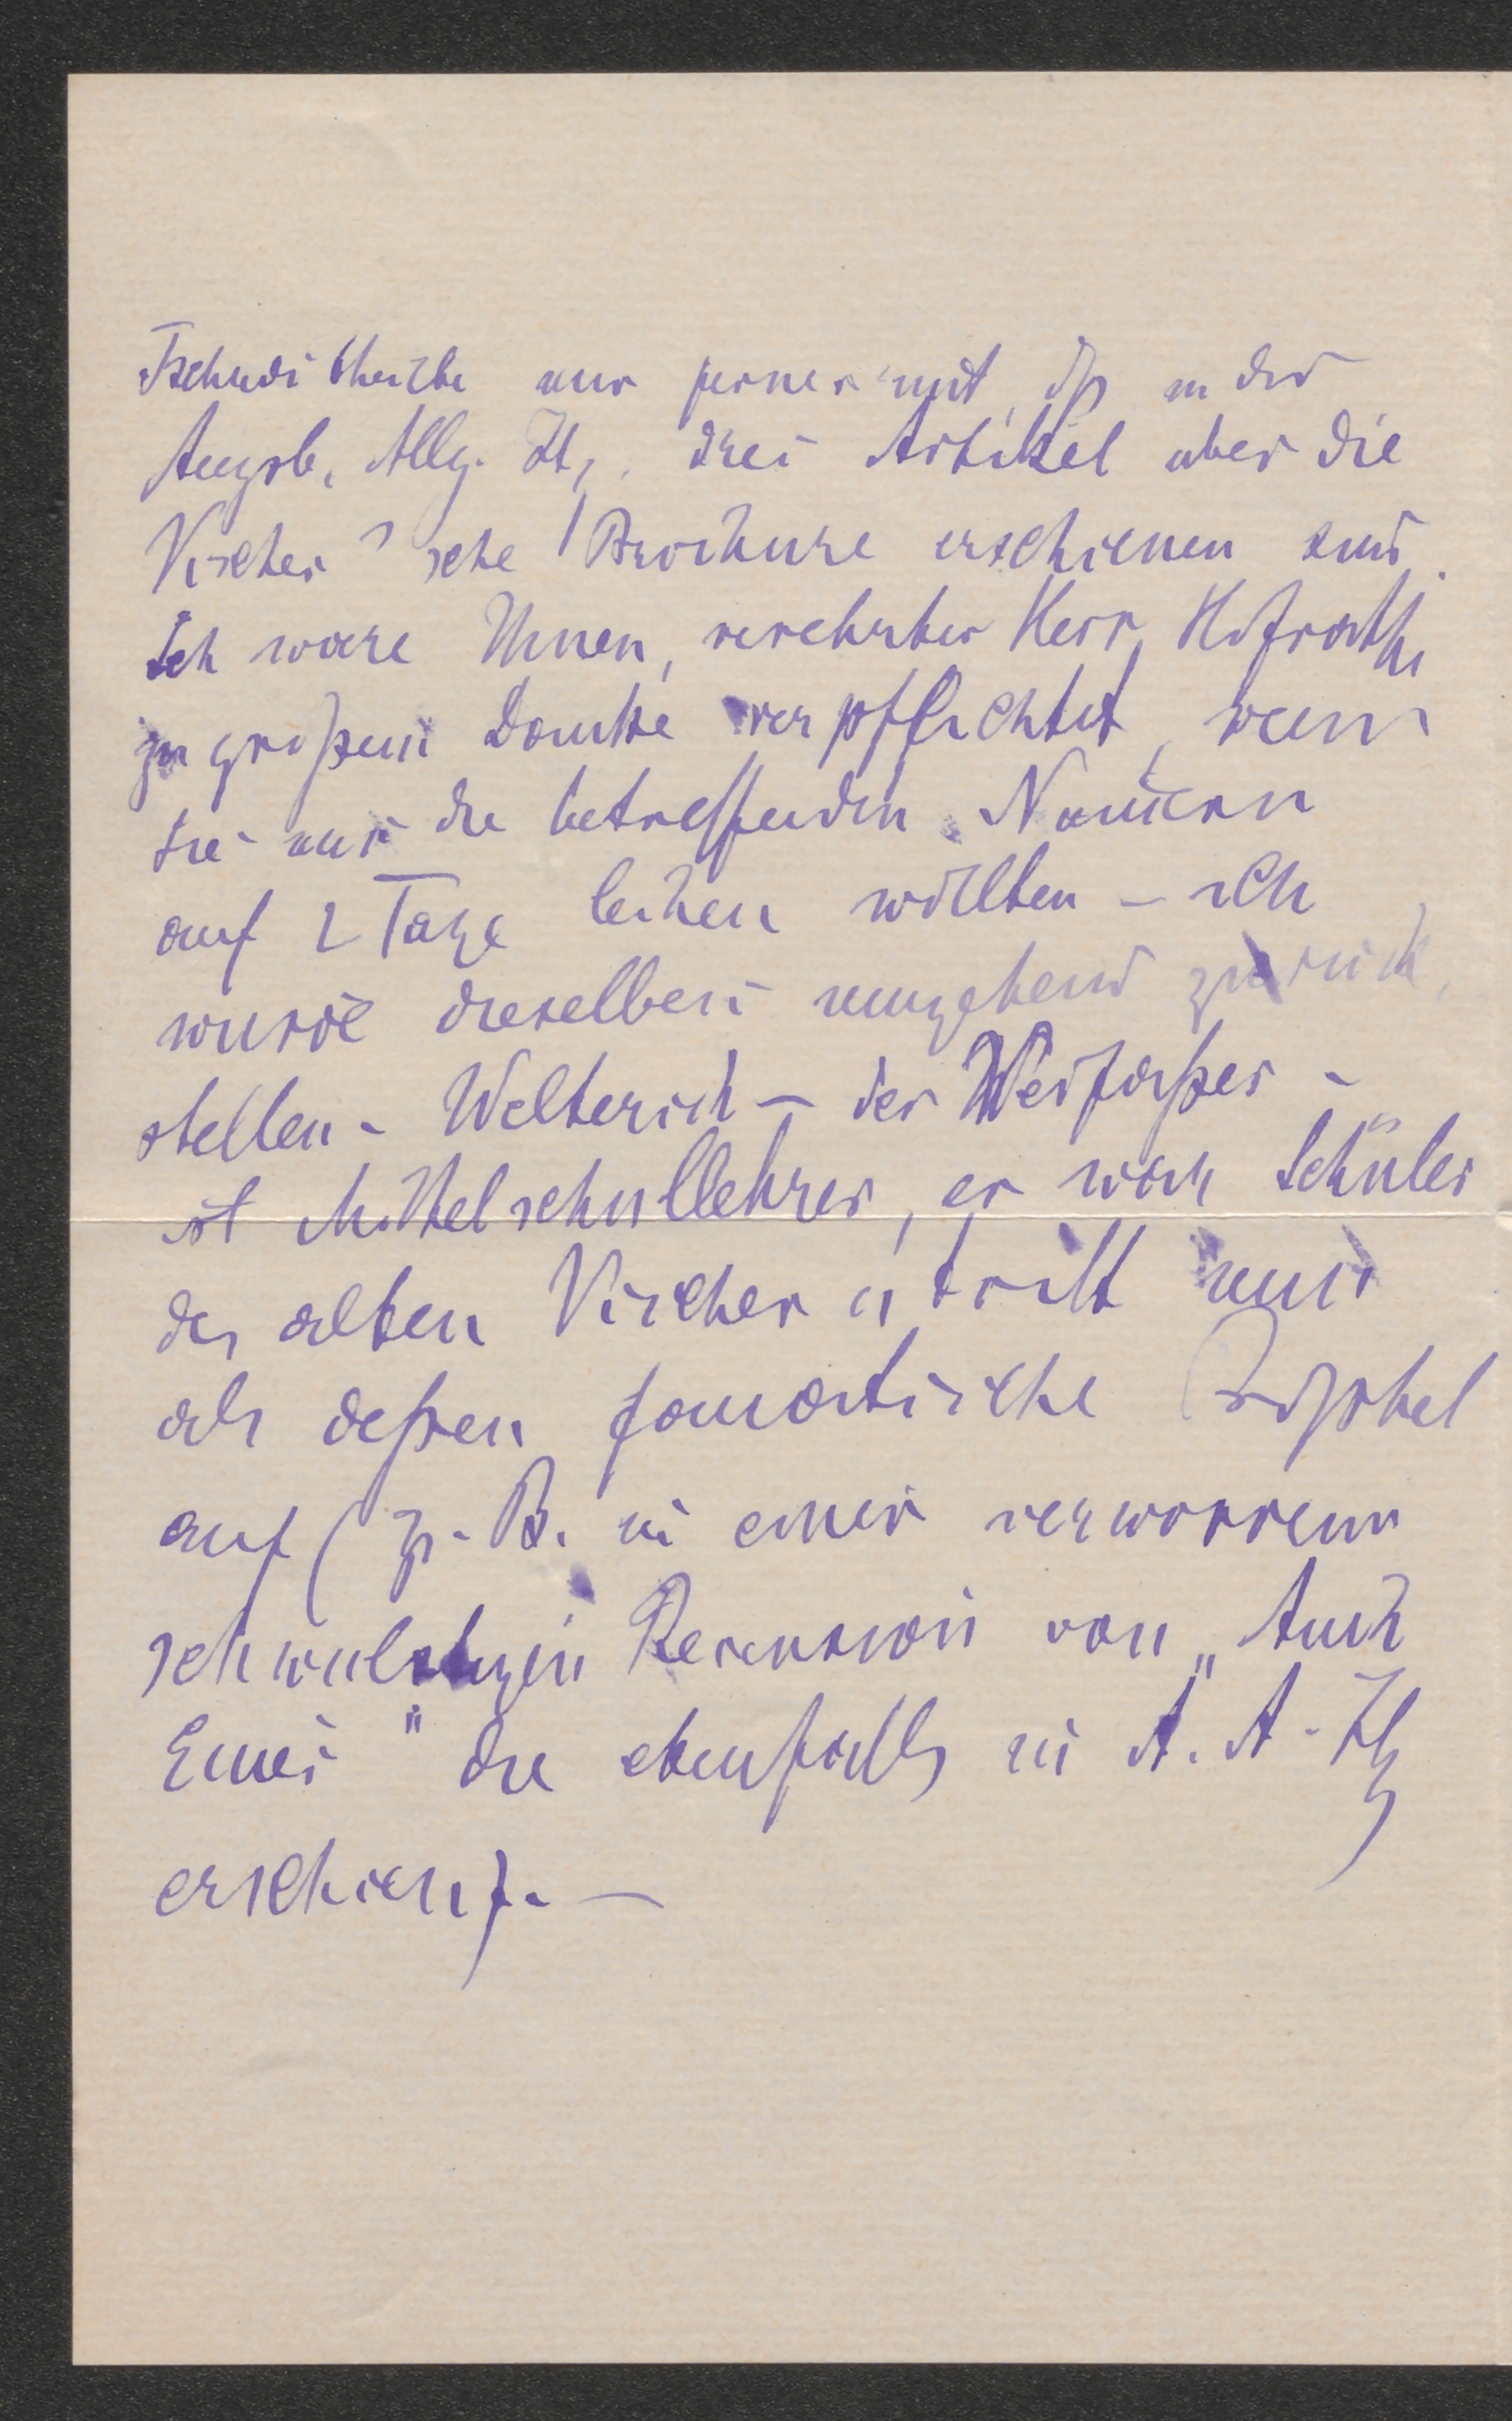 Tschudi theilte mir ferner mit, dß in der
Augsb. Allg. Ztg. drei Artikel über die
Vischer'sche Brochure erschienen sind.
Ich wäre Ihnen, verehrter Herr Hofrath,
zu großem Danke verpflichtet, wenn
Sie mir die betreffenden Numern
auf 2 Tage leihen wollten – ich
würde dieselben umgehend zurück
stellen – Weltrich – der Verfaßer –
ist Mittelschullehrer, er war Schüler
des alten Vischer u tritt nun
als deßen fanatische Apostel
auf (z. B. in einer verworrenen
schwulstigen Recension von „Auch
Einer" die ebenfalls in A. A. Ztg
erschien). –